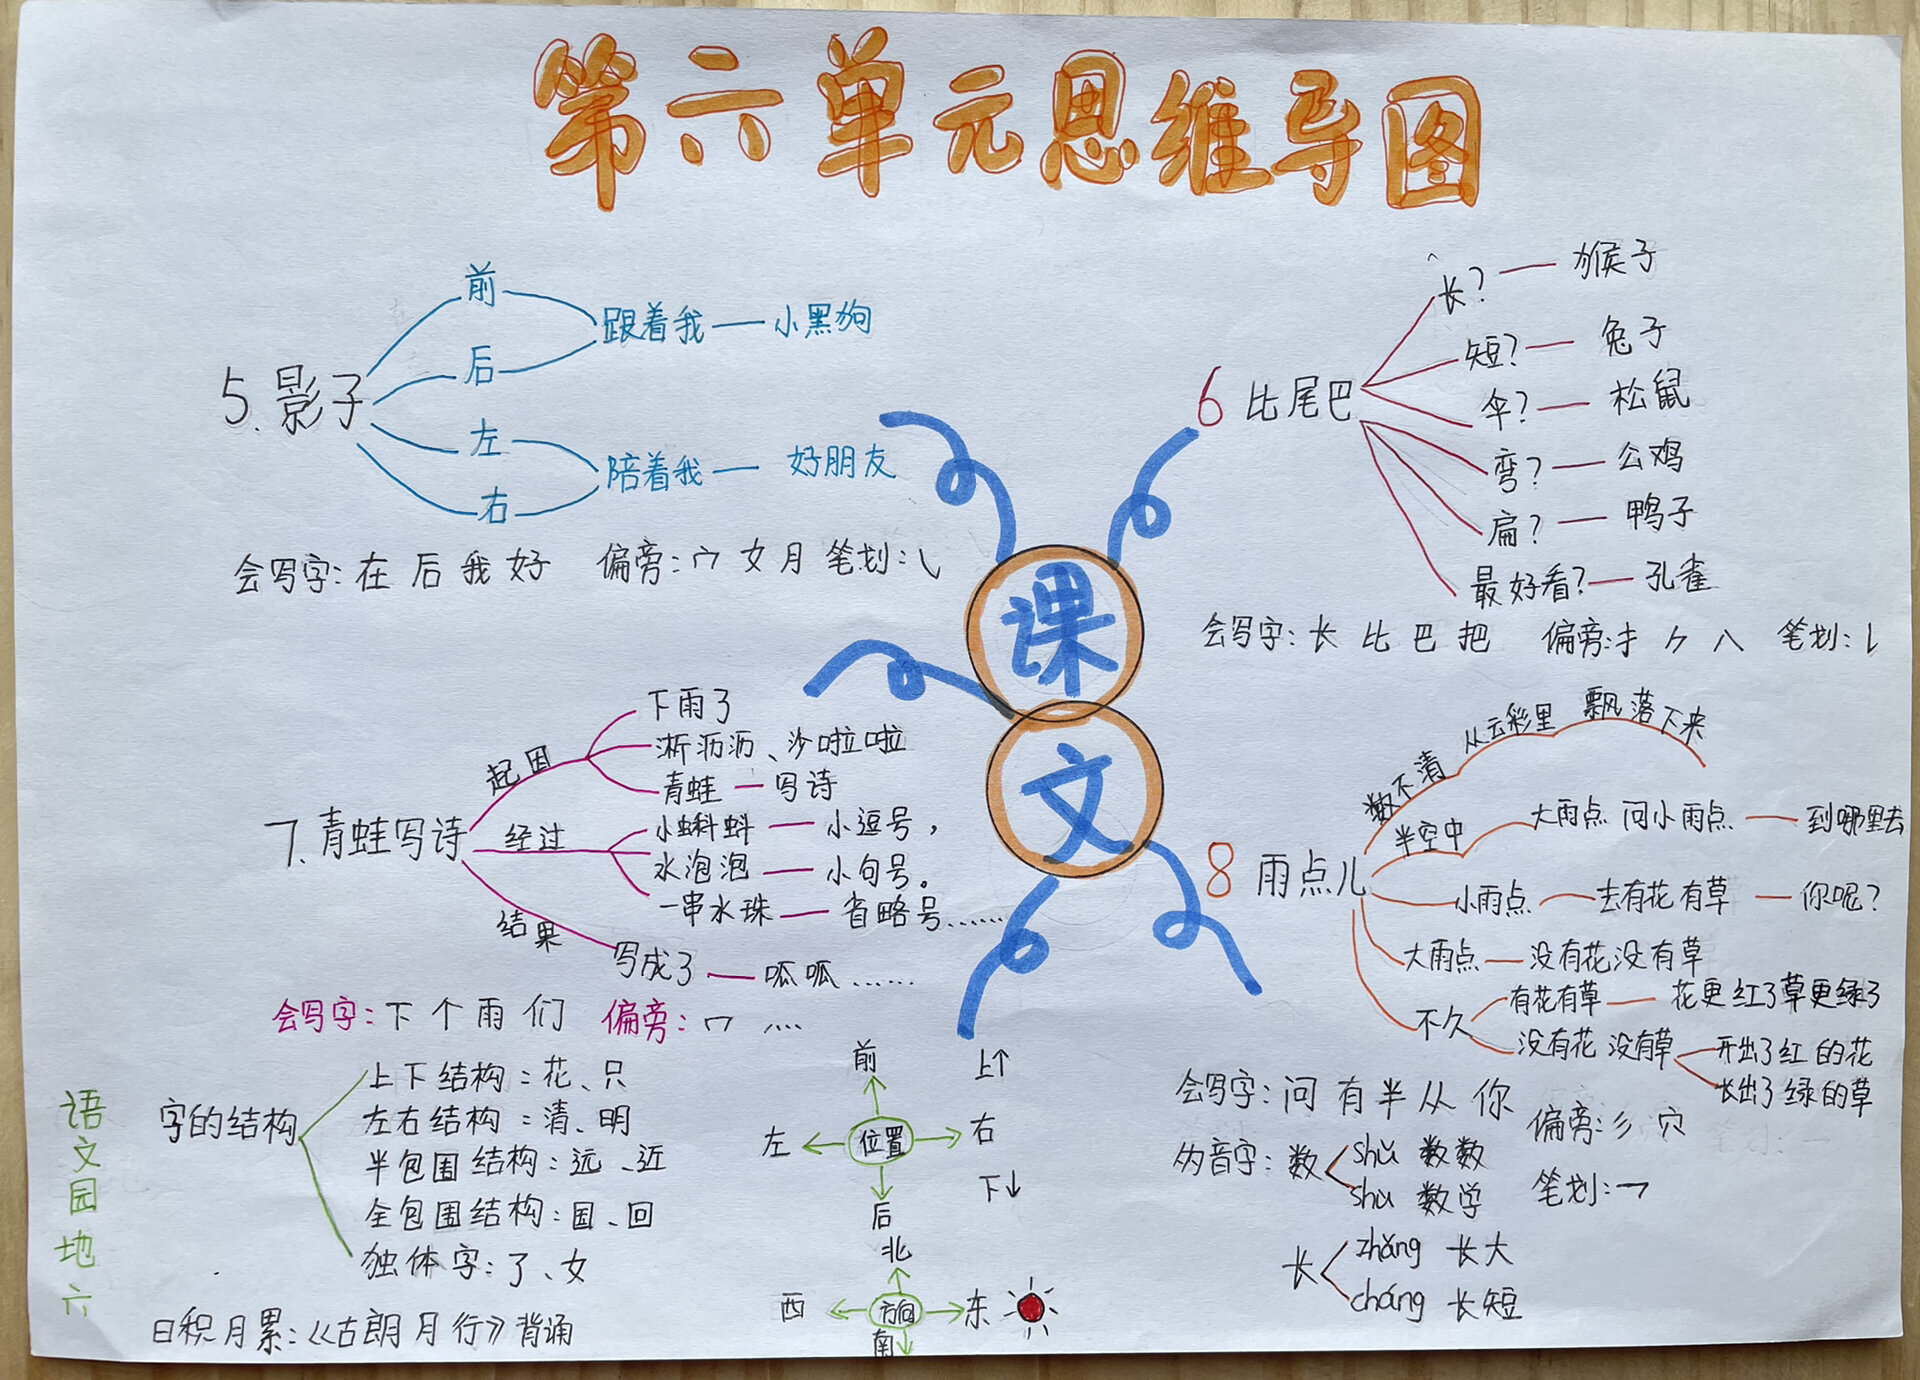 第六单元思维导图
课文
5. 影子
前
后
跟着我 — 小黑狗
左
右
陪着我 — 好朋友
会写字: 在 后 我 好 偏旁: 宀 女 月 笔划: ㇂
6 比尾巴
长? — 猴子
短? — 兔子
伞? — 松鼠
弯? — 公鸡
扁? — 鸭子
最好看? — 孔雀
会写字: 长 比 巴 把 偏旁: 扌 ⺈ 八 笔划: ㇄
7. 青蛙写诗
起因
下雨了
淅沥沥、沙啦啦
青蛙 — 写诗
经过
小蝌蚪 — 小逗号,
水泡泡 — 小句号。
一串水珠 — 省略号……
结果
写成了 — 呱呱……
会写字: 下 个 雨 们 偏旁: 冖 灬
8 雨点儿
数不清 从云彩里 飘落下来
半空中 大雨点 问小雨点 — 到哪里去
小雨点 — 去有花有草 — 你呢?
大雨点 — 没有花没有草
不久
有花有草 — 花更红了草更绿了
没有花 没有草
开出了红的花
长出了绿的草
会写字: 问 有 半 从 你 偏旁: 彡 穴
多音字: 数 shǔ 数数
shu 数学
笔划: ㇖
长 zhǎng 长大
cháng 长短
语文园地六
字的结构
上下结构: 花、只
左右结构: 清、明
半包围结构: 远、近
全包围结构: 国、回
独体字: 了、女
日积月累:《古朗月行》背诵
前
上↑
左 位置 右
下↓
后
北
西 方向 东
南